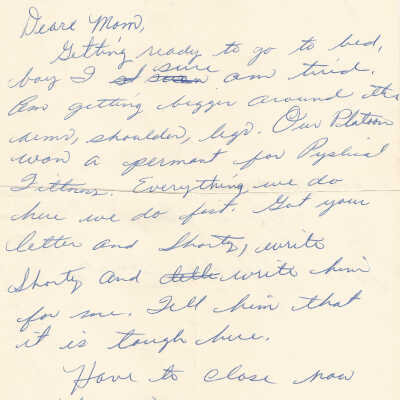 Deare Mom,
Getting ready to go to bed,
boy I sure am tired.
Am getting bigger around the
arms, shoulder, legs. Our Platoon
won a permant for Pyshical
Fittness. Everything we do
here we do fast. Got your
letter and Shorty, write
Shorty and write him
for me. Tell him that
it is tough here.
Have to close now